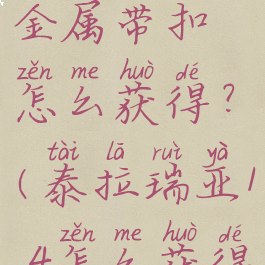 金属带扣
zěn me huò dé
怎么获得?
tài lā ruì yà
(泰拉瑞亚1
zěn me huò dé
4怎么获得